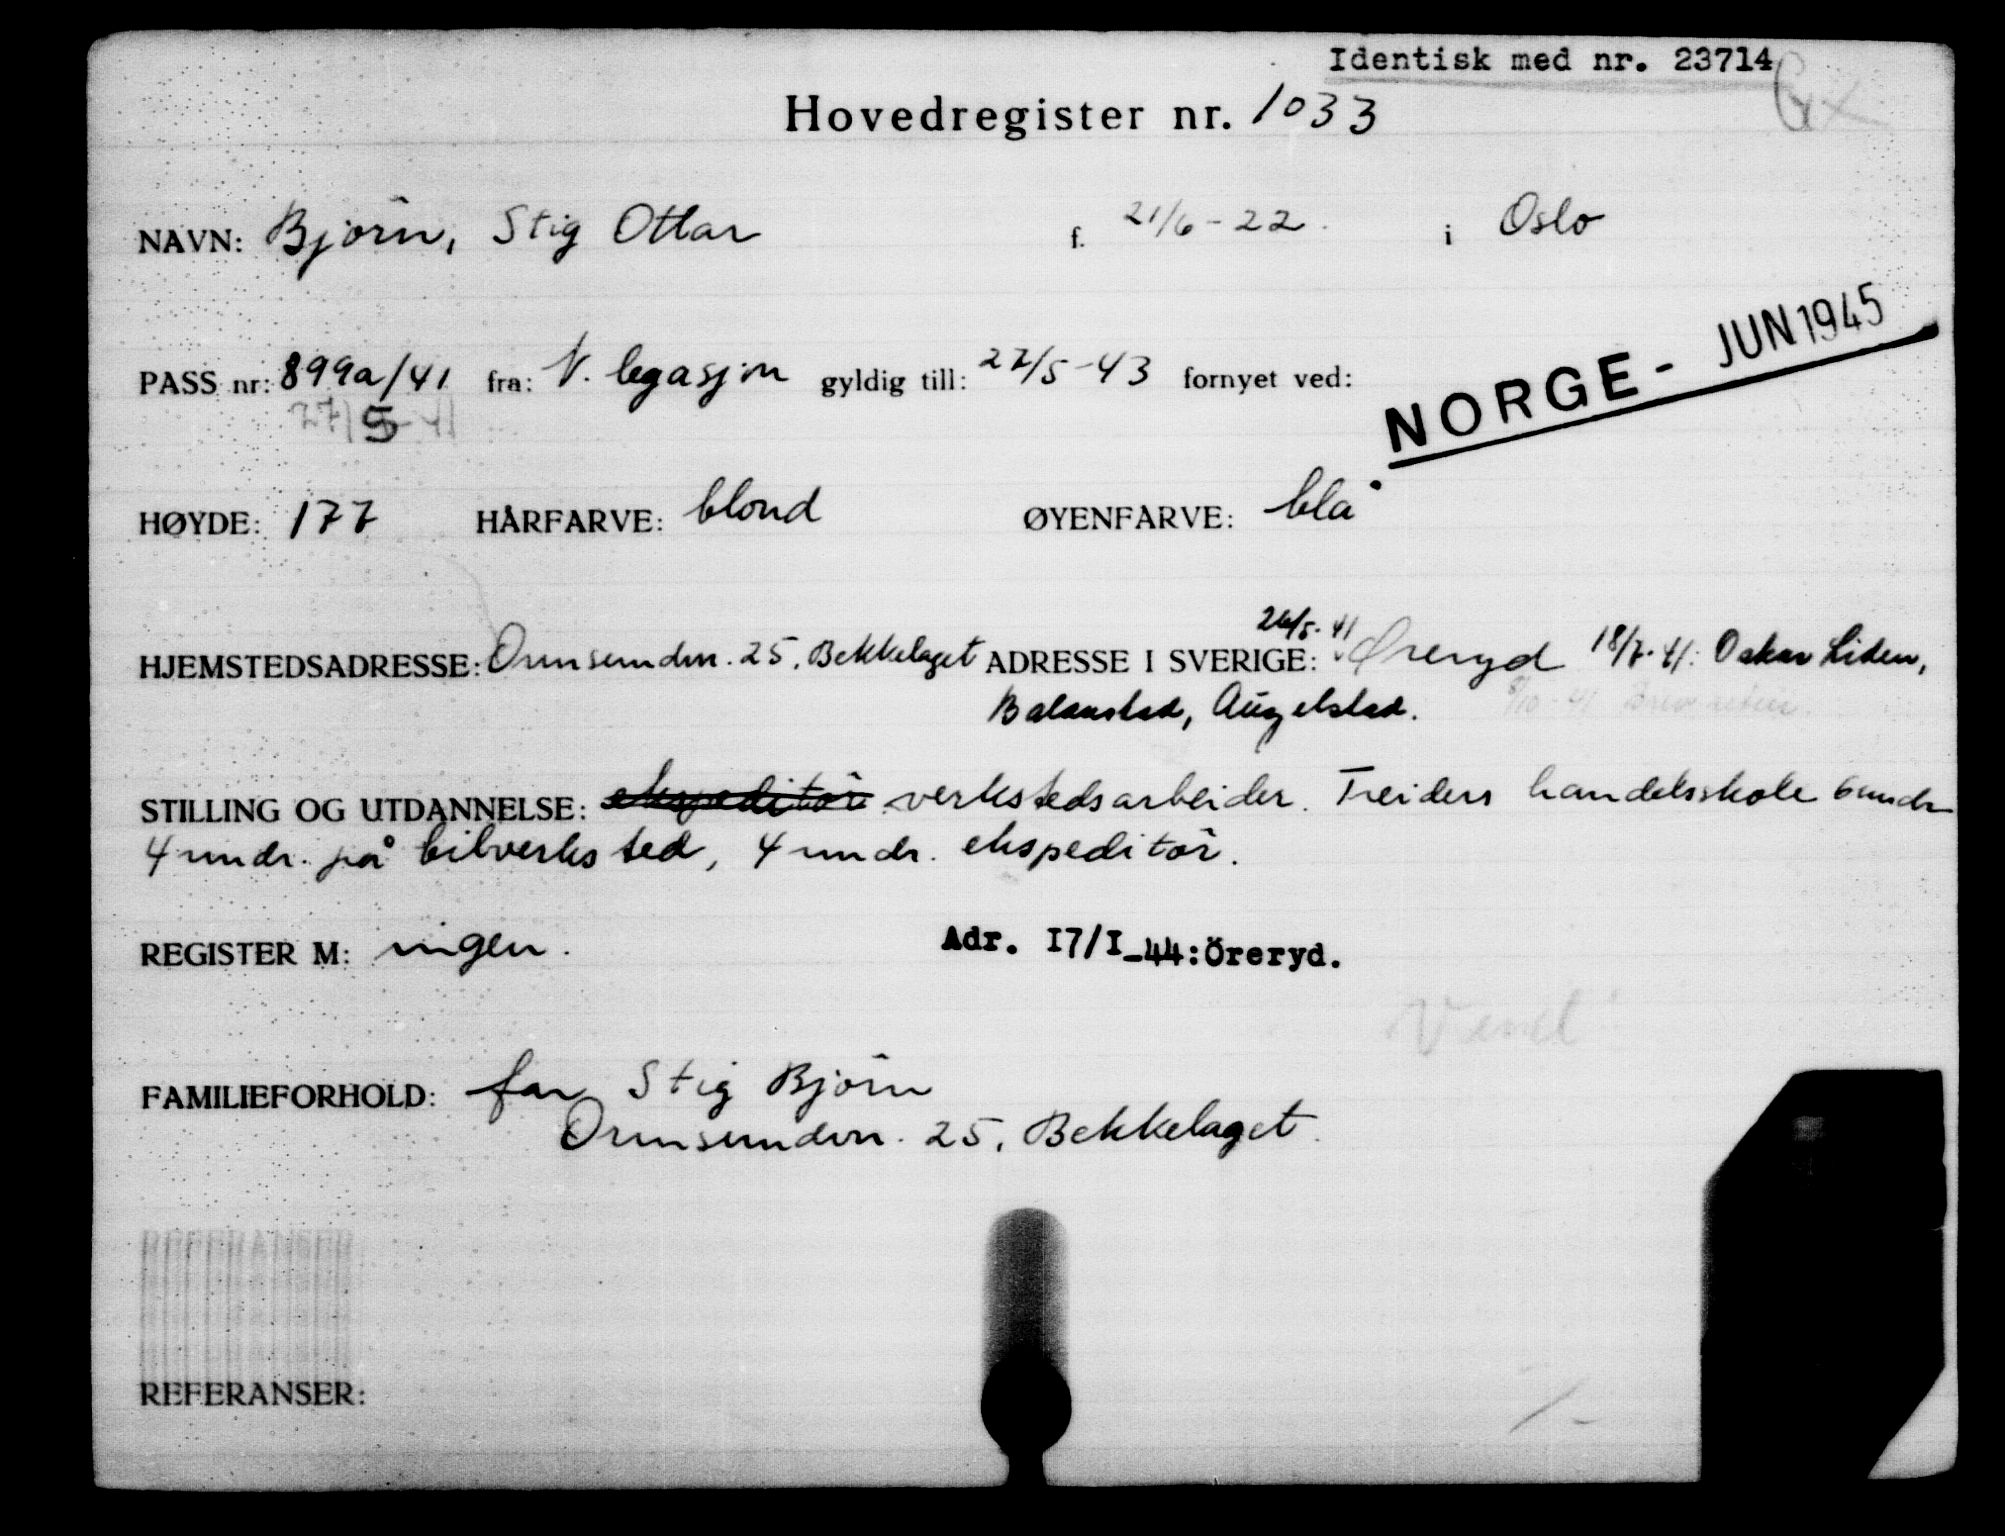 Identisk med nr. 23714
Hovedregister nr. 1033
NAVN: Bjørn, Stig Ottar f. 21/6-22. i Oslo
NORGE - JUN 1945
PASS nr: 899a/41 fra: N. legasjon gyldig till: 27/5-43 fornyet ved:
27/5-41
HØYDE: 177 HÅRFARVE: blond ØYENFARVE: blå
26/5-41
HJEMSTEDSADRESSE: Ormsundvn. 25, Bekkelaget ADRESSE I SVERIGE: Øreryd 18/7-41: Oskar Liden,
Balanstad, Augelstad.
8/10-41 Brev retur.
STILLING OG UTDANNELSE: ekspeditör verkstedsarbeider. Treiders handelsskole 6 mndr
4 mndr. på bilverksted, 4 mndr. ekspeditör.
REGISTER M: ingen. Adr. I7/I-44: Öreryd.
Vend
FAMILIEFORHOLD: far Stig Bjørn
Ormsundvn. 25, Bekkelaget.
REFERANSER: